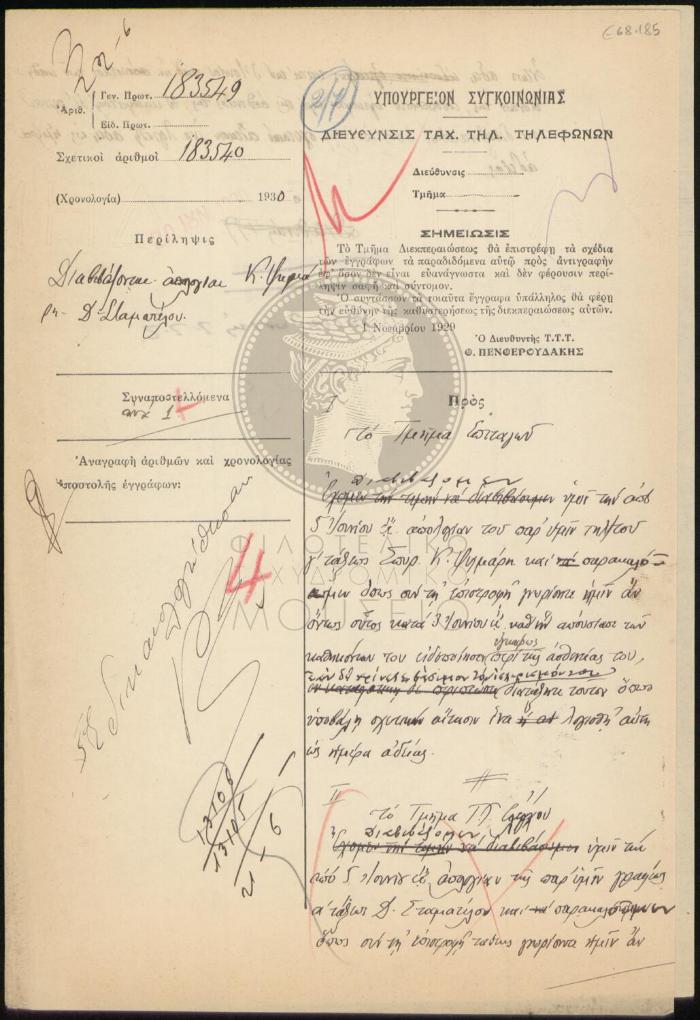 C68.185
22-6
Ἀριθ.
Γεν. Πρωτ. 183549
Εἰδ. Πρωτ.
Σχετικοὶ ἀριθμοὶ 183540
(Χρονολογία) 1930
Περίληψις
Διαβιβάζονται ἀπολογίαι Κ. Ψιμάρη
Δ. Σταματέλου.
Συναποστελλόμενα
ἀνὰ 1
Ἀναγραφὴ ἀριθμῶν καὶ χρονολογίας
ἀποστολῆς ἐγγράφων:
4
Ἐδικαιολογήθησαν
13106
13105
21-6
2/7
ΥΠΟΥΡΓΕΙΟΝ ΣΥΓΚΟΙΝΩΝΙΑΣ
ΔΙΕΥΘΥΝΣΙΣ ΤΑΧ. ΤΗΛ. ΤΗΛΕΦΩΝΩΝ
Διεύθυνσις
Τμῆμα
ΣΗΜΕΙΩΣΙΣ
Τὸ Τμῆμα Διεκπεραιώσεως θὰ ἐπιστρέφῃ τὰ σχέδια
τῶν ἐγγράφων τὰ παραδιδόμενα αὐτῷ πρὸς ἀντιγραφὴν
ἐφ' ὅσον δὲν εἶναι εὐανάγνωστα καὶ δὲν φέρουσιν περί-
ληψιν σαφῆ καὶ σύντομον.
Ὁ συντάσσων τὰ τοιαῦτα ἔγγραφα ὑπάλληλος θὰ φέρῃ
τὴν εὐθύνην τῆς καθυστερήσεως τῆς διεκπεραιώσεως αὐτῶν.
1 Νοεμβρίου 1929
Ὁ Διευθυντὴς Τ.Τ.Τ.
Θ. ΠΕΝΘΕΡΟΥΔΑΚΗΣ
Πρὸς
I
τὸ Τμῆμα Ἐπιταγῶν
Διαβιβάζομεν
Ἔχομεν τὴν τιμὴν νὰ διαβιβάσωμεν ὑμῖν τὴν ἀπὸ
5 Ἰουνίου ἀπολογίαν τοῦ παρ' ὑμῖν
γ' τάξεως Σπυρ. Κ. Ψιμάρη καὶ παρακαλοῦ-
μεν ὅπως σὺν τῇ ἐπιστροφῇ γνωρίσητε ἡμῖν ἂν
ὄντως οὗτος κατὰ 3 Ἰουνίου καθ' ἣν ἀπουσίασε τῶν
ἐγκαίρως
καθηκόντων του εἰδοποίησεν περὶ τῆς ἀσθενείας του,
διατάξητε τοῦτον ὅπως
ὑποβάλῃ σχετικὴν αἴτησιν ἵνα λογισθῇ αὕτη
ὡς ἡμέρα ἀδείας.
II
τὸ Τμῆμα
Διαβιβάζομεν
Ἔχομεν τὴν τιμὴν νὰ διαβιβάσωμεν ὑμῖν τὴν
ἀπὸ 5 Ἰουνίου ἀπολογίαν τῆς παρ' ὑμῖν γραφέως
α' τάξεως Δ. Σταματέλου καὶ παρακαλοῦμεν
ὅπως σὺν τῇ ἐπιστροφῇ ταύτης γνωρίσητε ἡμῖν ἂν
ΦΙΛΟΤΕΛΙΚΟ
ΤΑΧΥΔΡΟΜΙΚΟ
ΜΟΥΣΕΙΟ